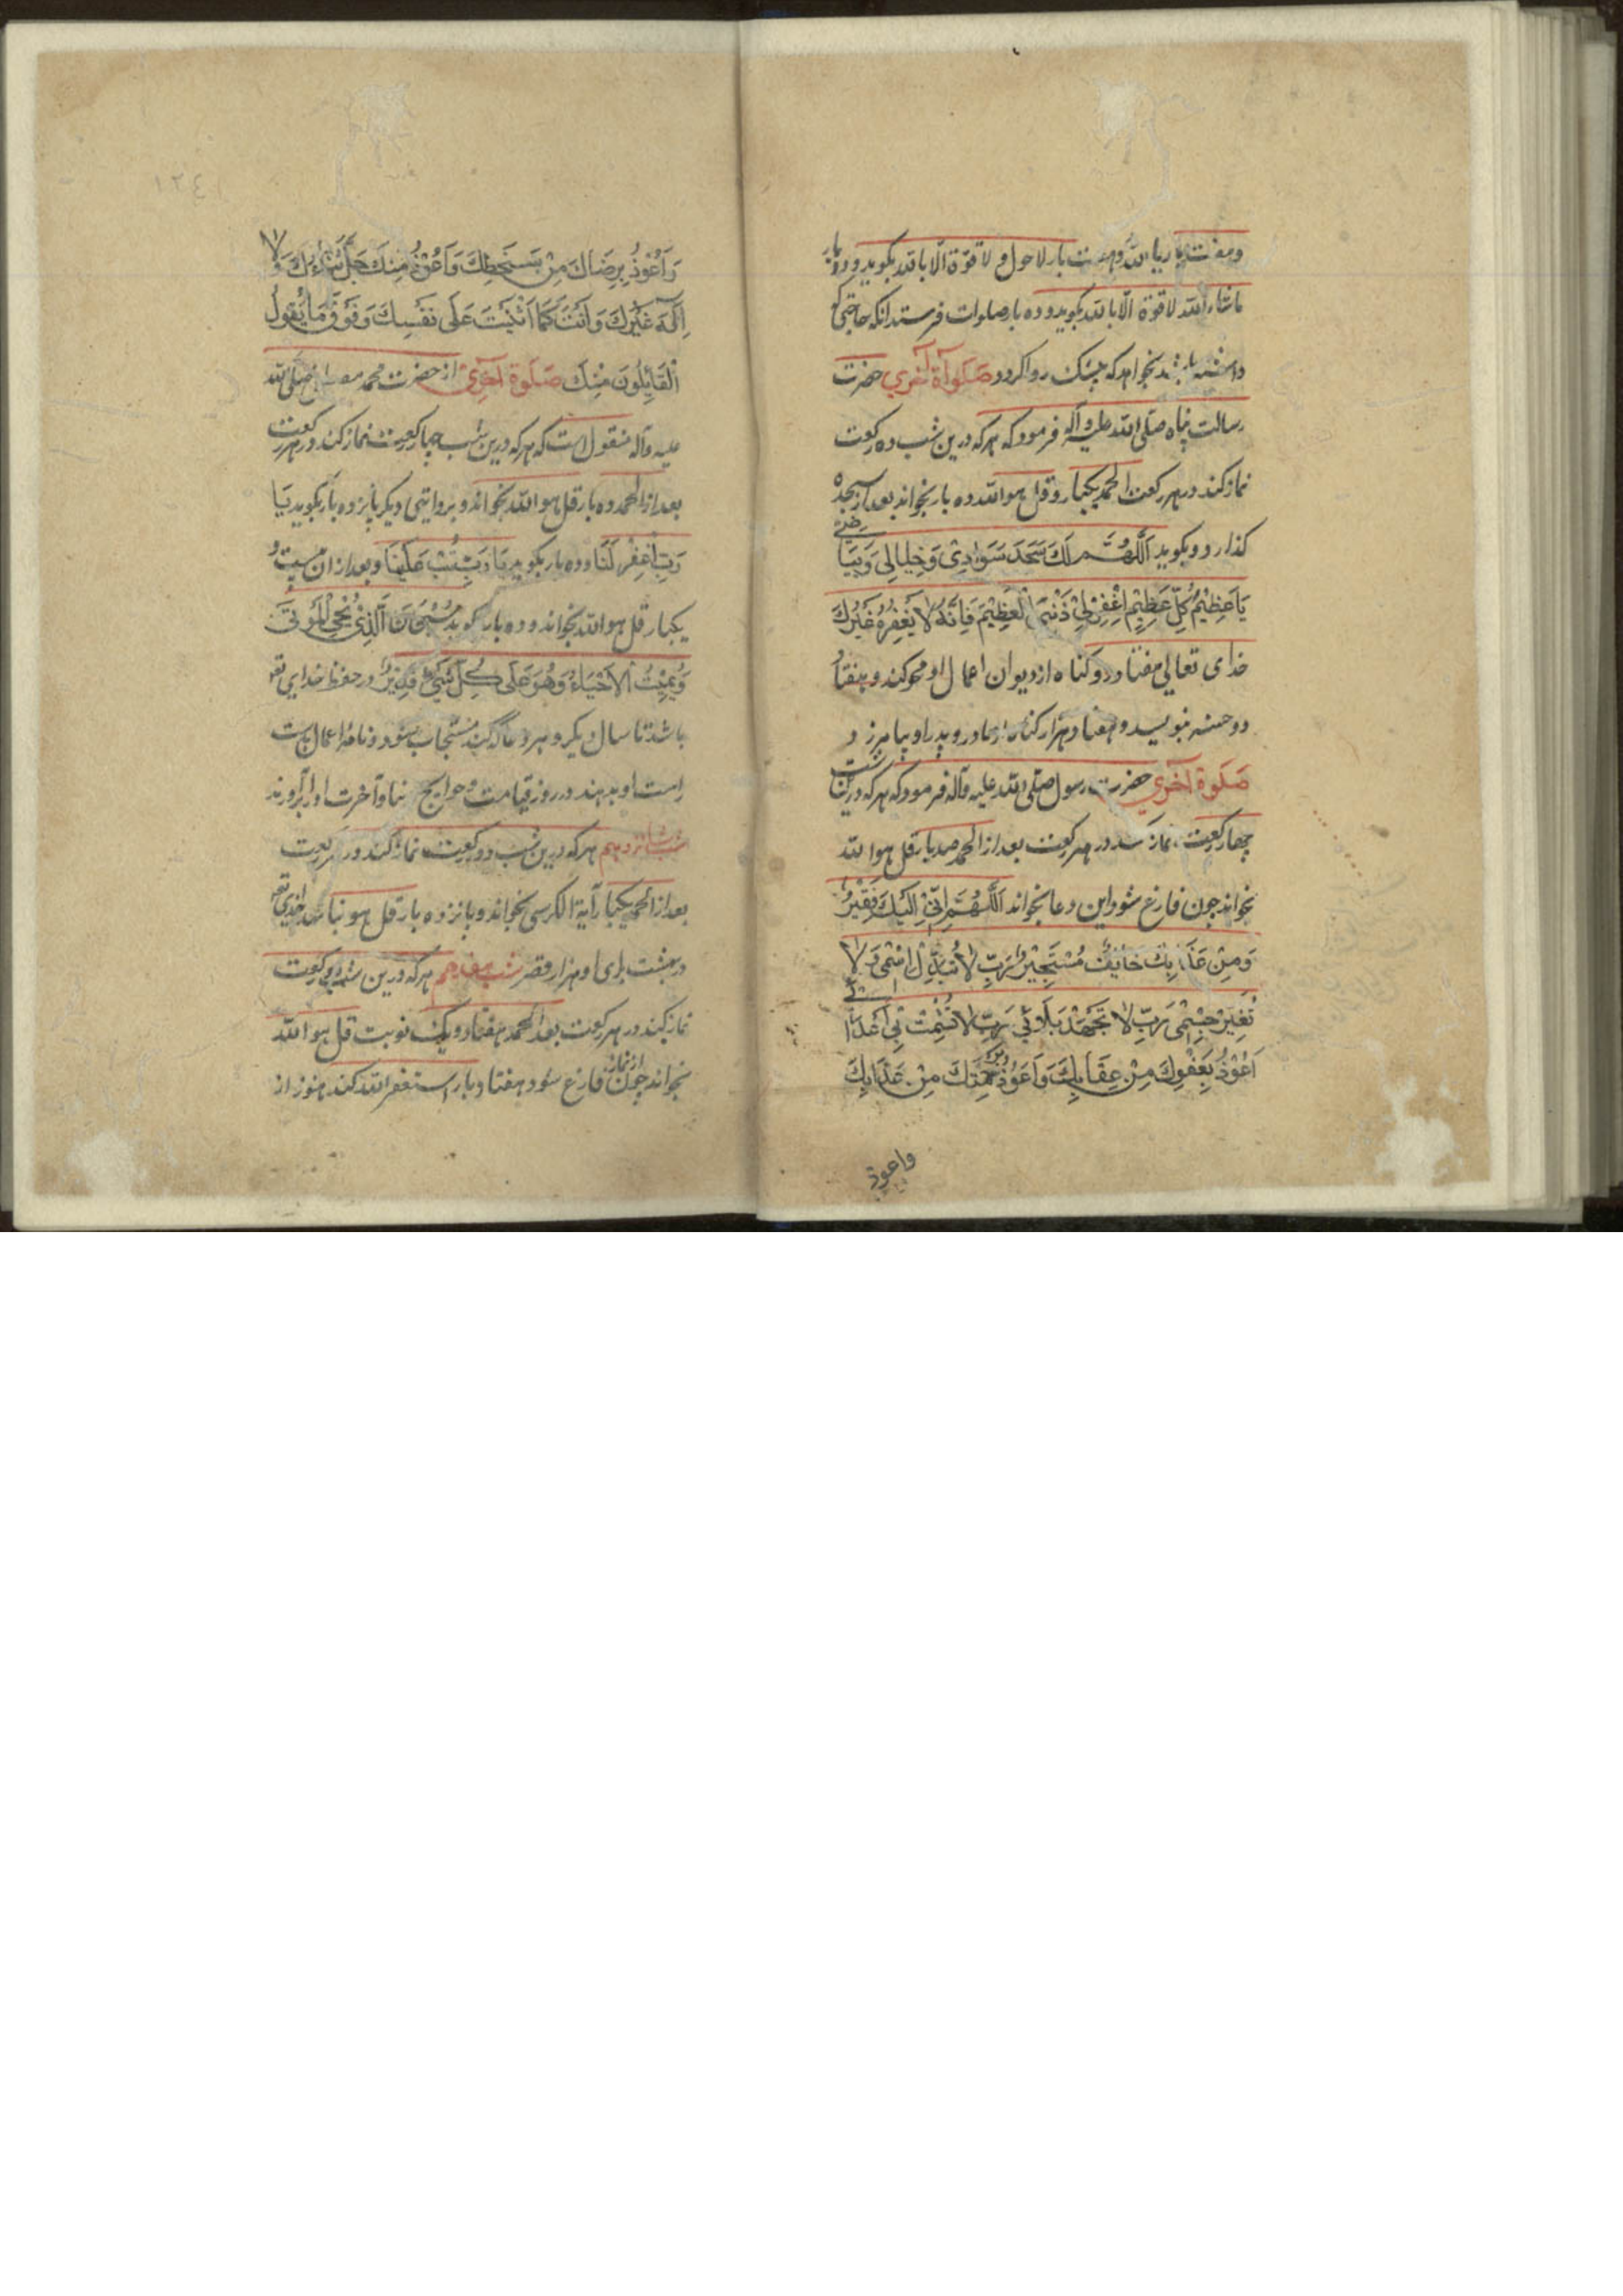 وهفت بار یا الله وهفت بار لاحول ولا قوّة الّا بالله بکوید و ده بار
ماشاء الله لا قوة الّا بالله بکوید و ده بار صلوات فرستد انکه حاجتی که
داشته باشد بخواهد که بیشک روا کردد صَلَوآة آخري حضرت
رسالت پناه صلی الله علیه وآله فرمود که هرکه درین شب ده رکعت
نماز کند در هر رکعت الحمد یکبار و قل هو الله ده بار بخواند بعد از آن سجده
کذارد و بکوید اَللّٰهُمَّ لَكَ سَجَدَ سَوَادِیْ وَخِیَالِی وَبَیَاضِیْ
یَا عَظِیْمُ کُلِّ عَظِیْمٍ اِغْفِرْ لِیْ ذَنْبِیَ الْعَظِیْمَ فَاِنَّهُ لَا یَغْفِرُهُ غَیْرُكَ
خدای تعالی هفتاد و دو کناه از دیوان اعمال او محو کند و هفتاد
دو حسنه بنویسد و هفتاد هزار کناه از مادر و پدر او بیامرزد و
صَلَوة آخري حضرت رسول صلی الله علیه وآله فرمود که هرکه درین شب
چهار رکعت نماز کند در هر رکعت بعد از الحمد صد بار قل هو الله
بخواند چون فارغ شود این دعا بخواند اَللّٰهُمَّ اِنِّیْ اِلَیْكَ فَقِیْرُ
وَمِنْ عَذَابِكَ خَایِفٌ مُسْتَجِیْرٌ رَبِّ لَا تُبَدِّلْ اِسْمِی وَلَا
تُغَیِّرْ جِسْمِی رَبِّ لَا تَجْهَدْ بَلَائِی رَبِّ لَا تُشْمِتْ بِی اَعْدَائِی
اَعُوْذُ بِعَفْوِكَ مِنْ عِقَابِكَ وَاَعُوْذُ بِرَحْمَتِكَ مِنْ عَذَابِكَ
واعوذ
وَاَعُوْذُ بِرِضَاكَ مِنْ سَخَطِكَ وَاَعُوْذُ مِنْكَ جَلَّ ثَنَاءُكَ وَلَا
اِلٰهَ غَیْرُكَ وَاَنْتَ کَمَا اَثْنَیْتَ عَلَی نَفْسِكَ وَفَوْقَ مَا یَقُولُ
الْقَائِلُونَ مِنْكَ صَلَوة آخري از حضرت محمد مصطفی صلی الله
علیه وآله منقول است که هرکه درین شب چهار رکعت نماز کند در هر رکعت
بعد از الحمد ده بار قل هو الله بخواند و بروایتی دیکر پانزده بار بکوید یَا
رَبِّ اغْفِرْ لَنَا و ده بار بکوید یَا رَبِّ تُبْ عَلَیْنَا و بعد از ان بیست و
یکبار قل هو الله بخواند و ده بار کوید سُبْحَانَ الَّذِیْ یُحْیِ الْمَوْتَی
وَیُمِیْتُ الْاَحْیَاءَ وَهُوَ عَلَی کُلِّ شَیْءٍ قَدِیْرٌ در حفظ خدای تع
باشد تا سال دیکر و هر دعا که کند مستجاب شود و نامه اعمال بدست
راست او بدهند در روز قیامت و حوایج دنیا و آخرت او برآورند
شب شانزدهم هرکه درین شب دو رکعت نماز کند در هر رکعت
بعد از الحمد یکبار آیة الکرسی بخواند و پانزده بار قل هو بنا کند خدای تع
در بهشت برای او هزار قصر شب هفدهم هرکه درین شب دو رکعت
نماز کند در هر رکعت بعد الحمد هفتاد و یک نوبت قل هو الله
بخواند چون از نماز فارغ شود هفتاد بار استغفر الله کند هنوز از